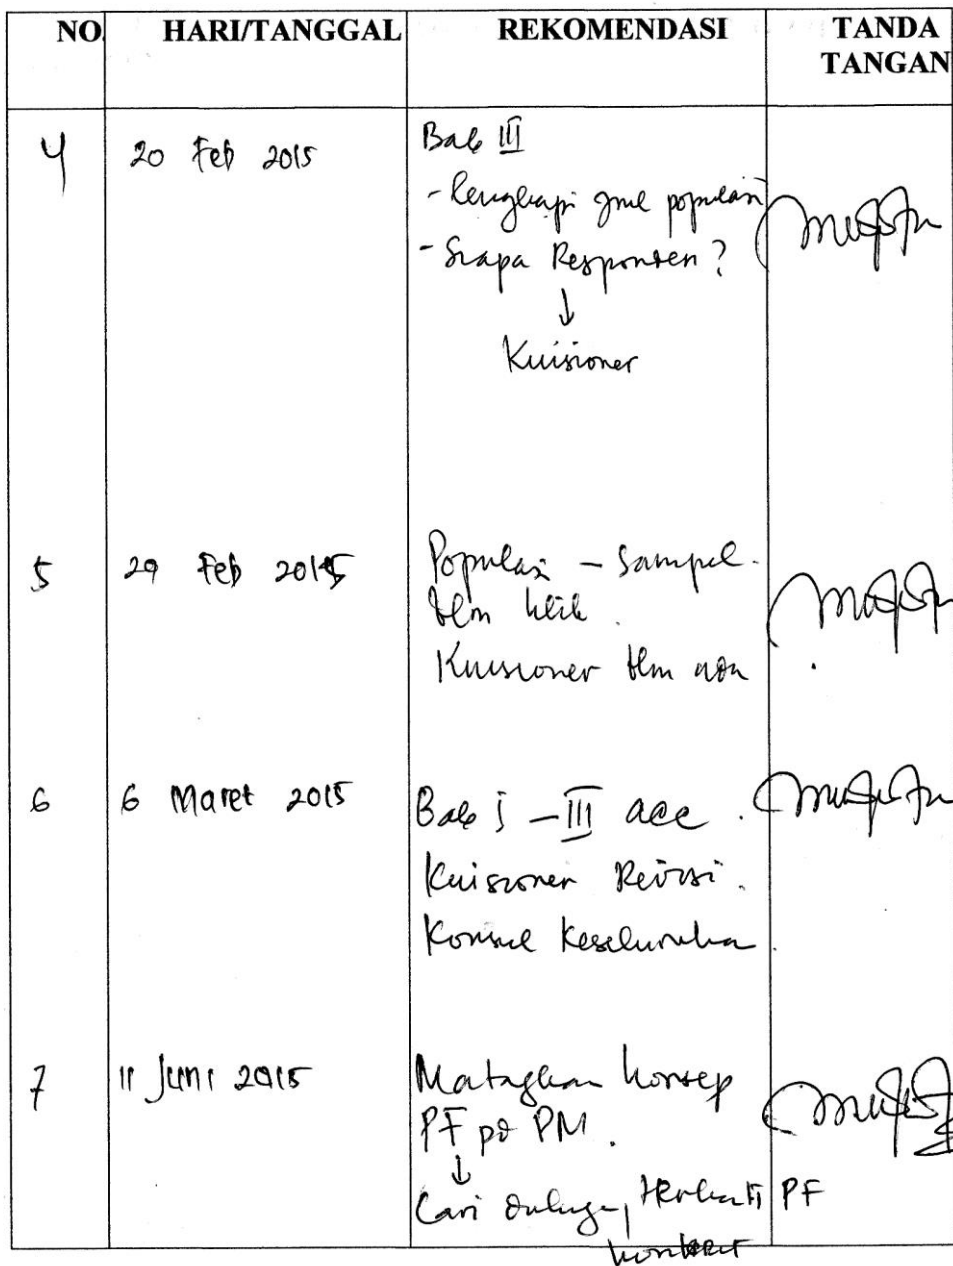 NO. HARI/TANGGAL REKOMENDASI TANDA TANGAN
4 20 Feb 2015 Bab III
- lengkapi jml populasi
- Siapa Responden?
↓
Kuisioner
5 29 Feb 2015 Populasi - Sampel.
blm
Kuisioner blm ada
6 6 Maret 2015 Bab I - III acc.
Kuisioner Revisi.
Konsul Keseluruha
7 11 Juni 2015 Matagkan konsep
PF pd PM.
↓
Cari PF